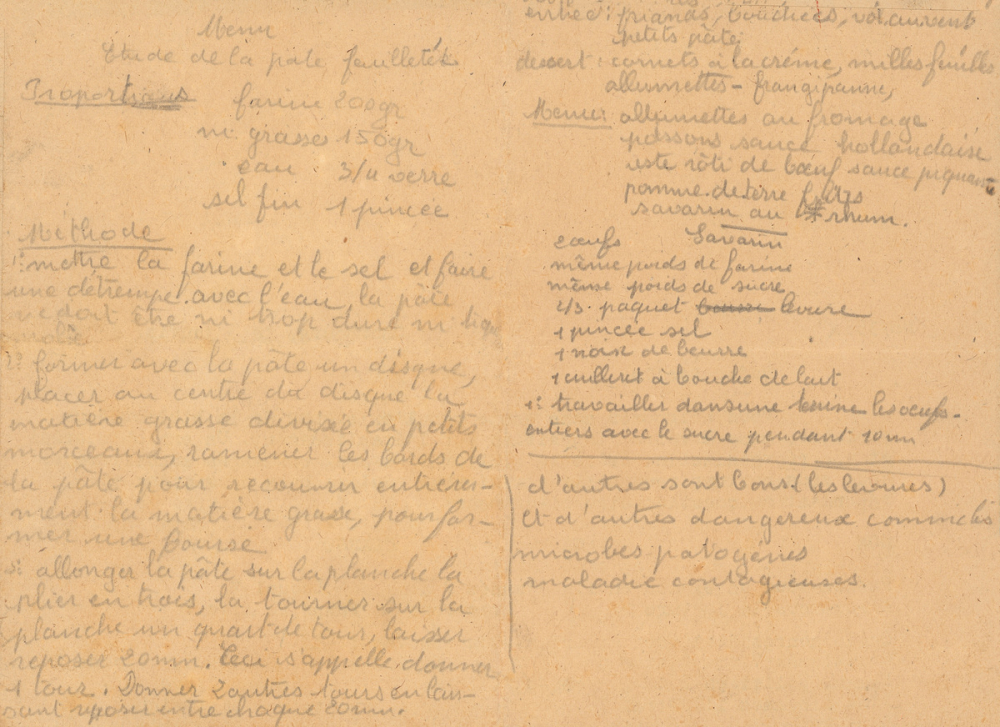 Menu
Etude de la pâte feuilletée
Proportions
farine 200gr
m. grasse 150gr
eau 3/4 verre
sel fin 1 pincée
Méthode
1: mettre la farine et le sel et faire
une détrempe avec l'eau, la pâte
ne doit être ni trop dure ni
2: former avec la pâte un disque,
placer au centre du disque la
matière grasse divisée en petits
morceaux, ramener les bords de
la pâte pour recouvrir entière-
ment la matière grasse, pour for-
mer une bourse
3: allonger la pâte sur la planche la
plier en trois, la tourner sur la
planche un quart de tour, laisser
reposer 20mn. Ceci s'appelle donner
1 tour. Donner 2 autres tours en lais-
sant reposer entre chaque 20mn.
entrée: friands, bouchées, vol au vent
petits pâtés
dessert: cornets à la crème, milles feuilles
allumettes - frangipanne,
Menu: allumettes au fromage
poissons sauce hollandaise
rôti de bœuf sauce piquante
pomme de terre frites
savarin au rhum.
Savarin
2 œufs
même poids de farine
même poids de sucre
2/3 paquet levure
1 pincée sel
1 noix de beurre
1 cuilleret à bouche de lait
1: travailler dans une terrine les oeufs
entiers avec le sucre pendant 10 mn
d'autres sont bons (les levures)
Et d'autres dangereux comme les
microbes patogènes
maladie contagieuses.